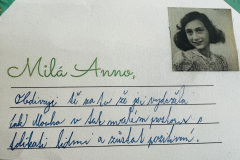 Milá Anno,
Obdivuji tě za to že jsi vydržela
tak dlouho v tak malém prostoru s
tolika lidmi a zůstat pozitivní.